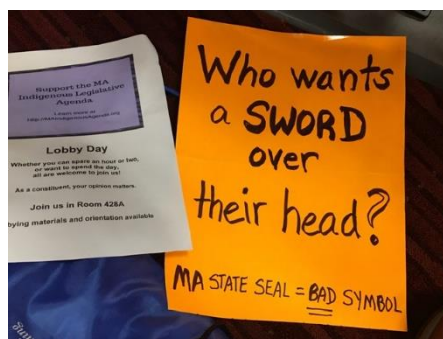 Support the MA
Indigenous Legislative
Agenda
Learn more at
Lobby Day
Whether you can spare an hour or two,
or want to spend the day,
all are welcome to join us!
As a constituent, your opinion matters.
Join us in Room 428A
bying materials and orientation available
Who wants
a SWORD
over
their head?
MA STATE SEAL = BAD SYMBOL